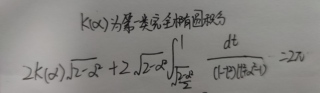 K(α)为第一类完全椭圆积分
2K(α)√(2-α²) + 2√(2-α²) ∫_{√(2-α²)/2}^{1} dt/((1-t²)(t²+α²-1)) = 2π